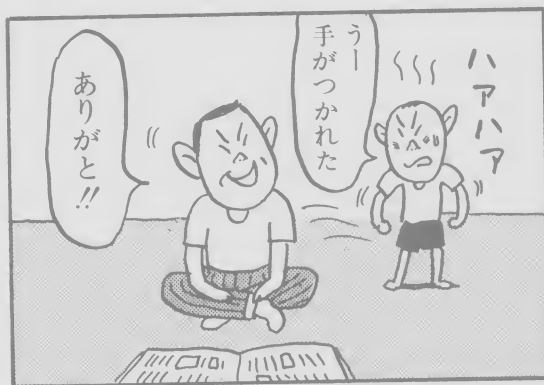 ハァハァ
うー
手がつかれた
ありがと!!